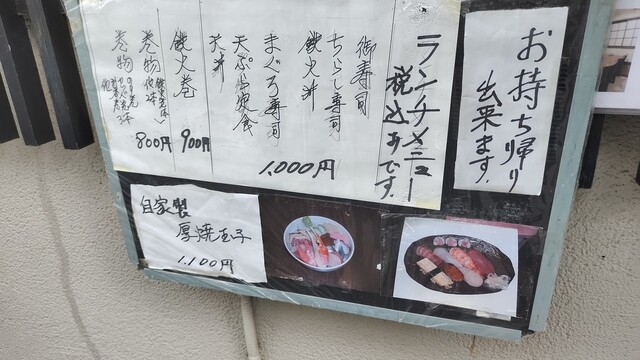 お持ち帰り
出来ます。
ランチメニュー
税込みです。
御寿司
ちらし寿司
鉄火丼
まぐろ寿司
天ぷら定食
天丼
1,000円
鉄火巻
900円
巻物
巻物
800円
自家製
厚焼玉子
1,100円